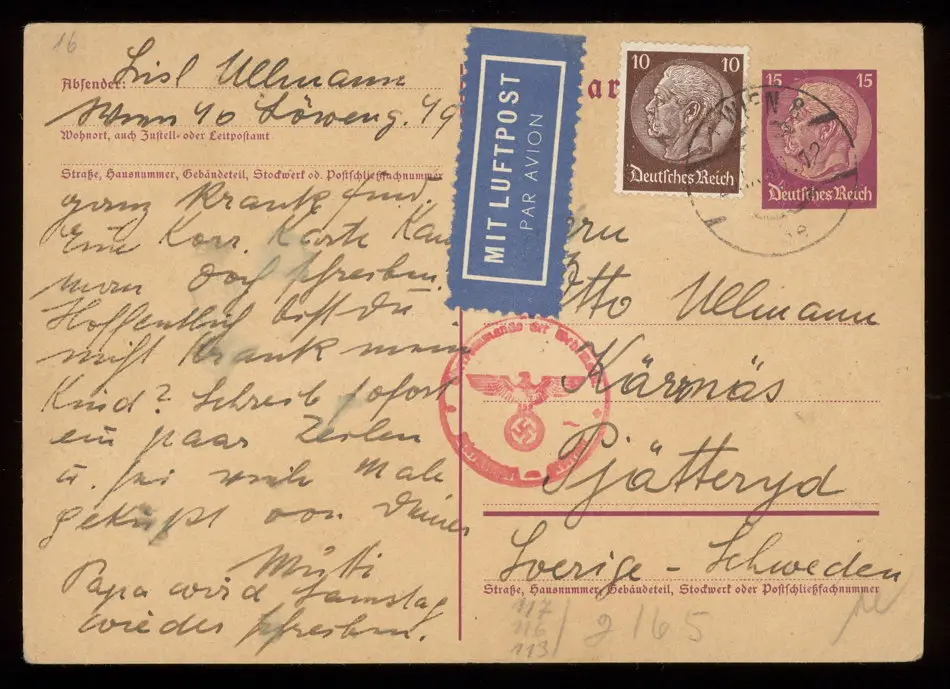 16
Absender: Lisl Ullmann
Wien 40 Löweng. 49
Wohnort, auch Zustell- oder Leitpostamt
Straße, Hausnummer, Gebäudeteil, Stockwerk od. Postschließfachnummer
ganz krank sind.
Eine Korr. Karte kan
man doch schreiben.
Hoffentlich bist du
nicht krank mein
Kind? Schreib sofort
ein paar Zeilen
u. sei viele Male
geküßt von Deiner
Mutti
Papa wird Samstag
wieder schreiben.
MIT LUFTPOST
PAR AVION
ar
10 10
Deutsches Reich
15 15
Deutsches Reich
WIEN
Otto Ullmann
Kärrnäs
Pjätteryd
Sverige - Schweden
Straße, Hausnummer, Gebäudeteil, Stockwerk oder Postschließfachnummer
117
116
113
2165